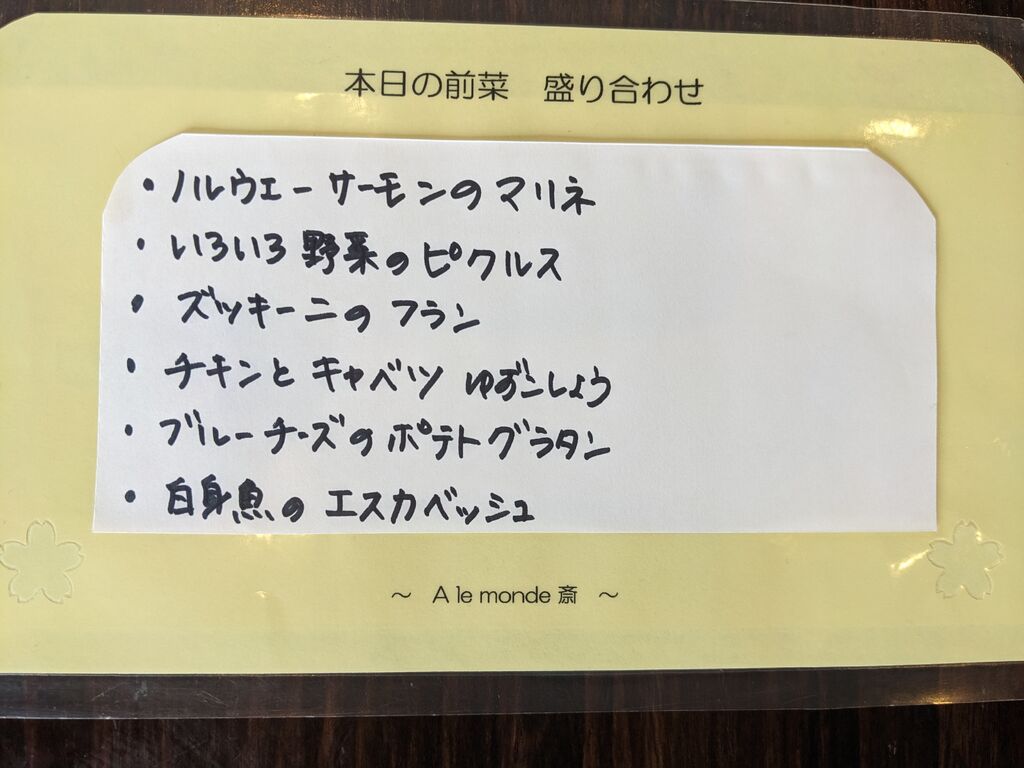 本日の前菜　盛り合わせ
・ノルウェーサーモンのマリネ
・いろいろ野菜のピクルス
・ズッキーニのフラン
・チキンとキャベツ ゆずこしょう
・ブルーチーズのポテトグラタン
・白身魚のエスカベッシュ
～ A le monde 斎 ～